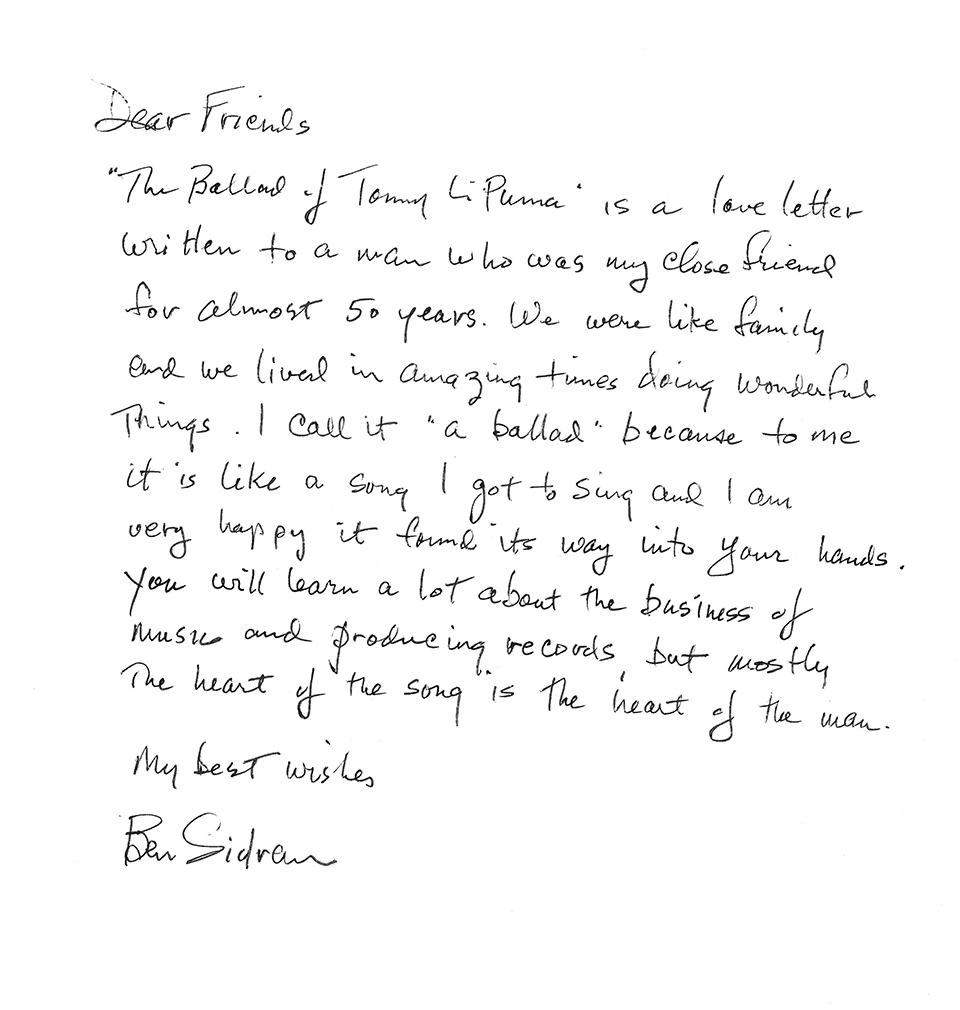 Dear Friends
"The Ballad of Tommy LiPuma" is a love letter
written to a man who was my close friend
for almost 50 years. We were like family
and we lived in amazing times doing wonderful
Things. I call it "a ballad" because to me
it is like a song I got to sing and I am
very happy it found its way into your hands.
You will learn a lot about the business of
music and producing records, but mostly
The heart of the song is the heart of the man.
My best wishes
Ben Sidran